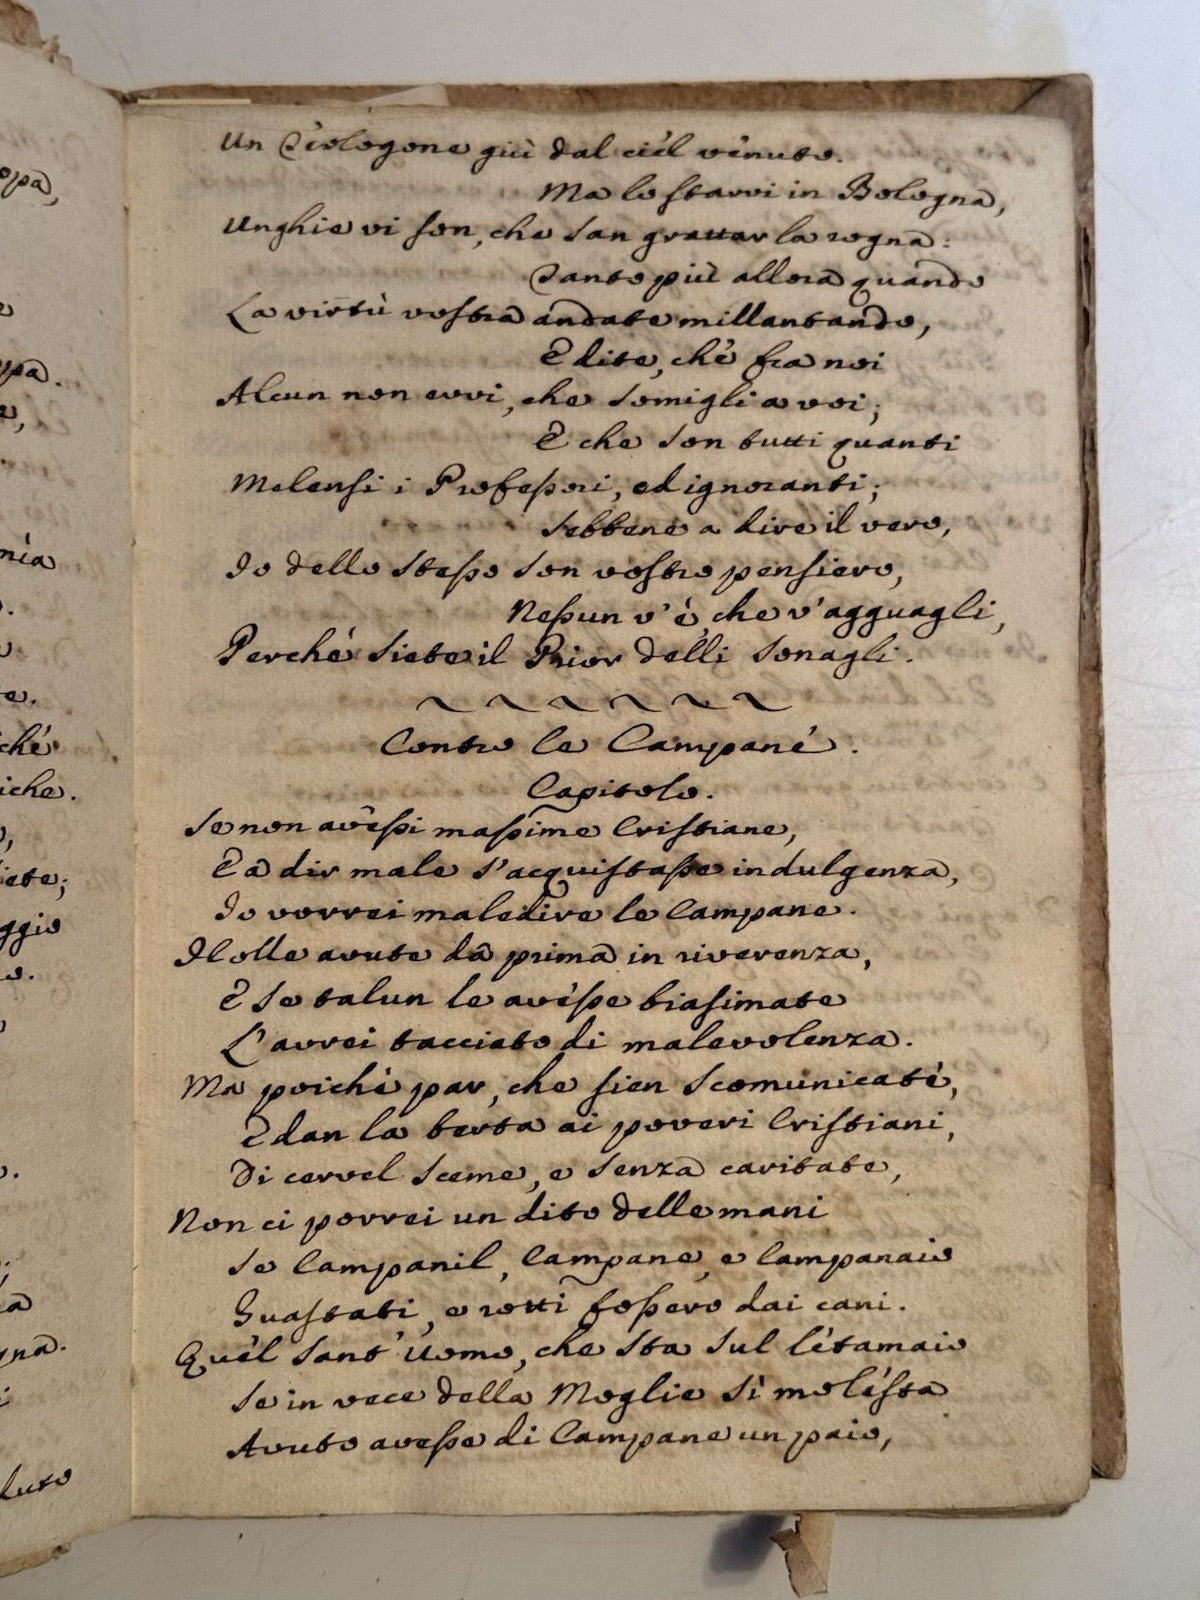 opa,
Un Teologone giù dal ciel venuto.
Ma lo starvi in Bologna,
Unghie vi son, che san grattar la rogna:
Tanto più allora quando
La virtù vostra andate millantando,
E dite, che fra noi
opa.
Alcun non evvi, che somigli a voi;
E che son tutti quanti
Melensi i Professori, ed ignoranti;
Sebbene a dire il vero,
Io dello stesso son vostro pensiero,
Nessun v'è, che v'agguagli,
Perché siete il Prior delli sonagli.
Contro le Campane.
Capitolo.
Se non avessi massime Cristiane,
E a dir male s'acquistasse indulgenza,
Io vorrei maledire le Campane.
Il colle avute da prima in riverenza,
E se talun le avesse biasimate
L'avrei tacciato di malevolenza.
Ma poiché par, che sien scomunicate,
E dan la berta ai poveri Cristiani,
Di cervel sceme, e senza caritate,
Non ci porrei un dito delle mani
Se Campanil, Campane, e Campanaio
Guastati, e rotti fossero dai cani.
Quel Sant'Uomo, che sta sul letamaio
Se in vece della Moglie sì molesta
Avuto avesse di Campane un paio,